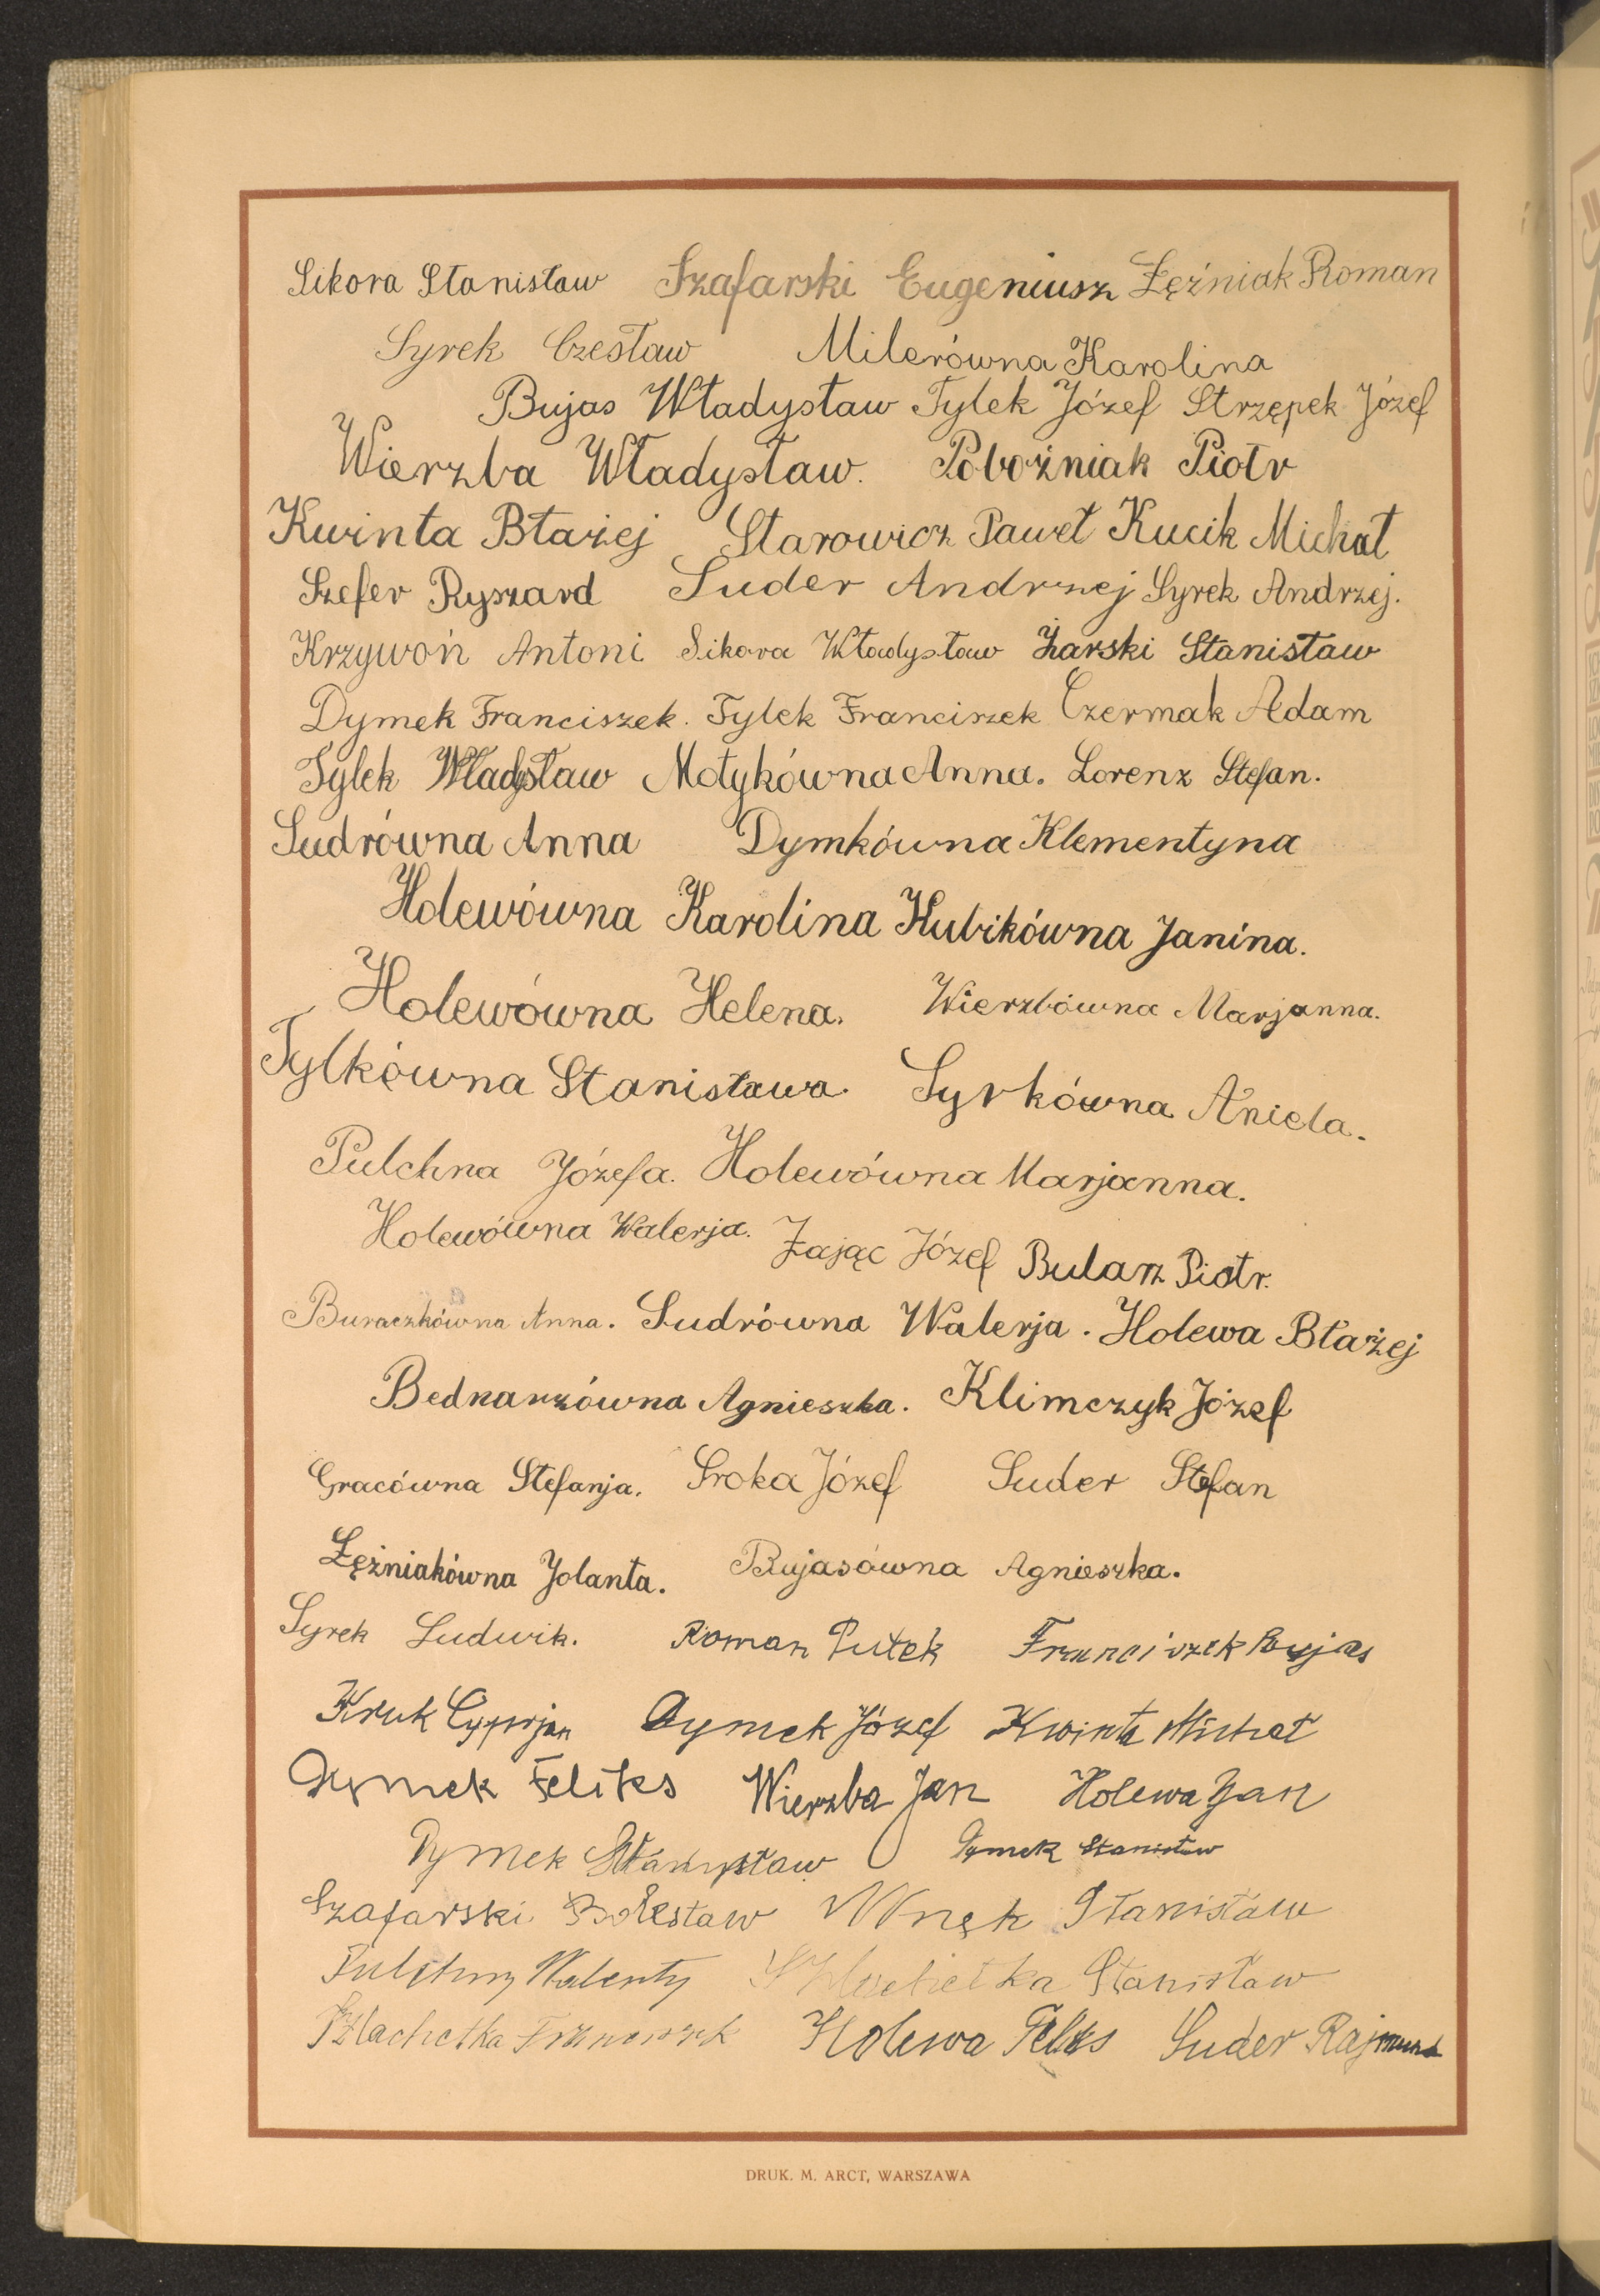 Sikora Stanisław Szafarski Eugeniusz Łęźniak Roman
Syrek Czesław Milerówna Karolina
Bujas Władysław Tylek Józef Strzępek Józef
Wierzba Władysław. Pobożniak Piotr
Kwinta Błażej Starowicz Paweł Kucik Michał
Szefer Ryszard Suder Andrzej Syrek Andrzej.
Krzywoń Antoni Sikora Władysław Żarski Stanisław
Dymek Franciszek. Tylek Franciszek Czermak Adam
Tylek Władysław Motykówna Anna. Lorenz Stefan.
Sudrówna Anna Dymkówna Klementyna
Holewówna Karolina Kubikówna Janina.
Holewówna Helena. Wierzbówna Marjanna.
Tylkówna Stanisława. Syrkówna Aniela.
Pulchna Józefa. Holewówna Marjanna.
Holewówna Walerja. Zając Józef Bularz Piotr.
Buraczkówna Anna. Sudrówna Walerja. Holewa Błażej
Bednarzówna Agnieszka. Klimczyk Józef
Gracówna Stefanja. Sroka Józef Suder Stefan
Łęźniakówna Jolanta. Bujasówna Agnieszka.
Syrek Ludwik. Roman Putek Franciszek Bujas
Kruk Cyprjan Dymek Józef Kwinta Michał
Dymek Feliks Wierzba Jan Holewa Jan
Dymek Władysław Dymek Stanisław
Szafarski Bolesław Wnęk Stanisław
Pulchny Walenty Szlachetka Stanisław
Szlachetka Franciszek Holewa Feliks Suder Rajmund
DRUK. M. ARCT, WARSZAWA